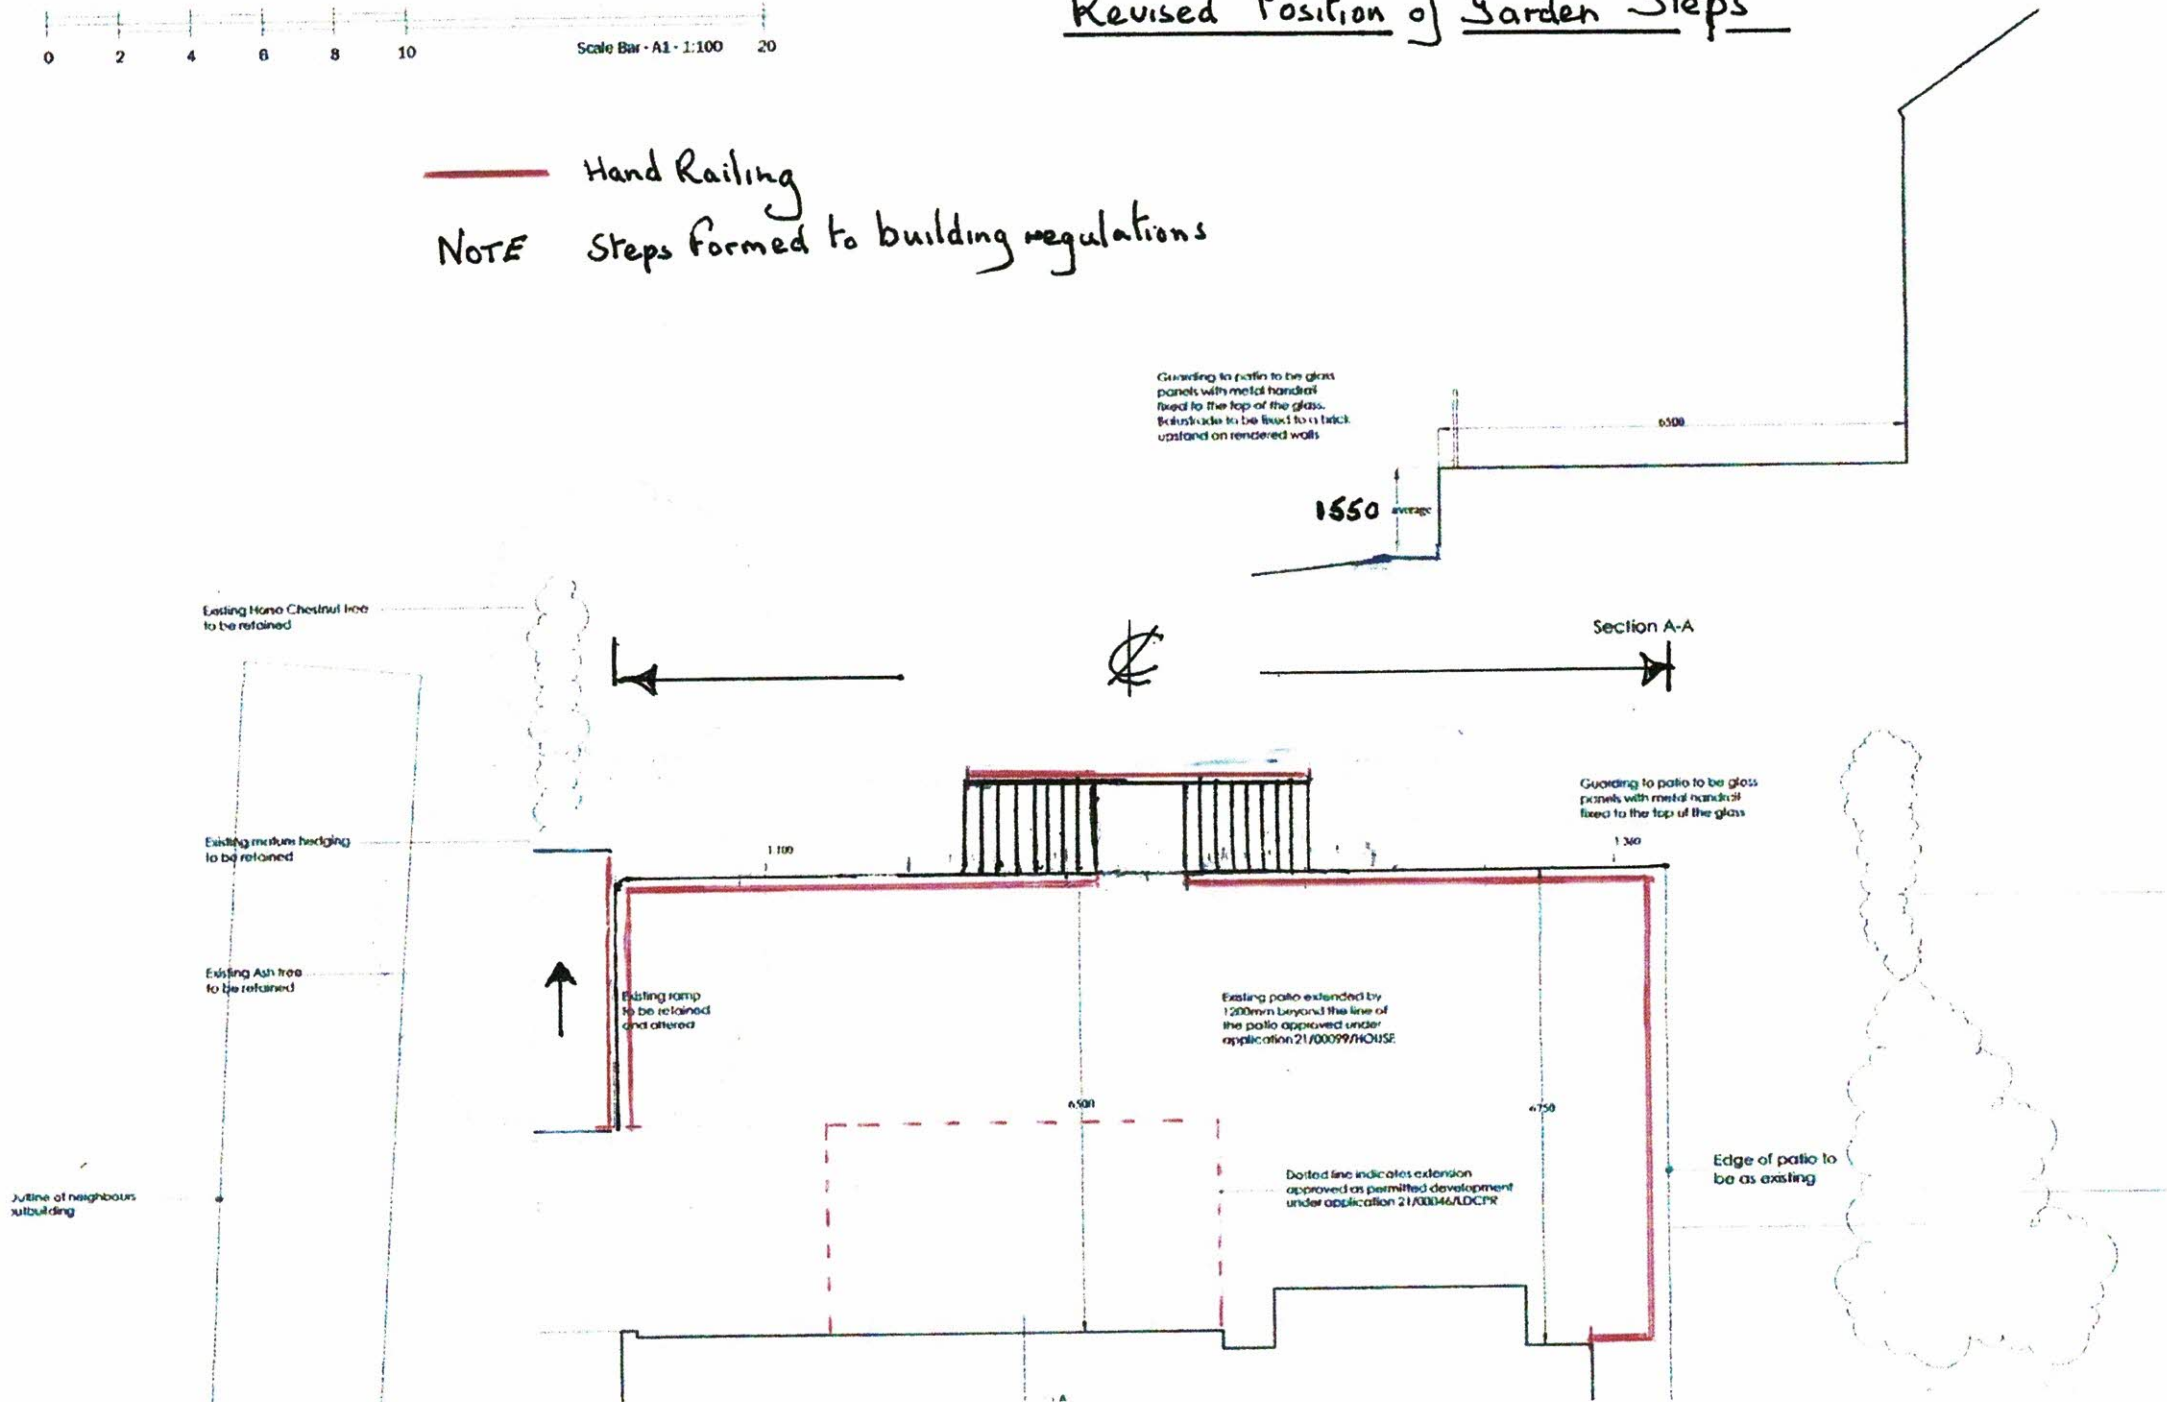 Revised Position of Garden Steps
0 2 4 6 8 10 Scale Bar - A1 - 1:100 20
Hand Railing
NOTE Steps formed to building regulations
Guarding to patio to be glass
panels with metal handrail
fixed to the top of the glass.
Balustrade to be fixed to a brick
upstand on rendered walls
6500
1550 average
Existing Horse Chestnut tree
to be retained
Section A-A
℄
Guarding to patio to be glass
panels with metal handrail
fixed to the top of the glass
Existing mature hedging
to be retained
1:100
Existing Ash tree
to be retained
Existing ramp
to be retained
and altered
Existing patio extended by
1200mm beyond the line of
the patio approved under
application 21/00099/HOUSE
6500
6750
Dotted line indicates extension
approved as permitted development
under application 21/00046/LDCPR
Edge of patio to
be as existing
Outline of neighbours
outbuilding
A